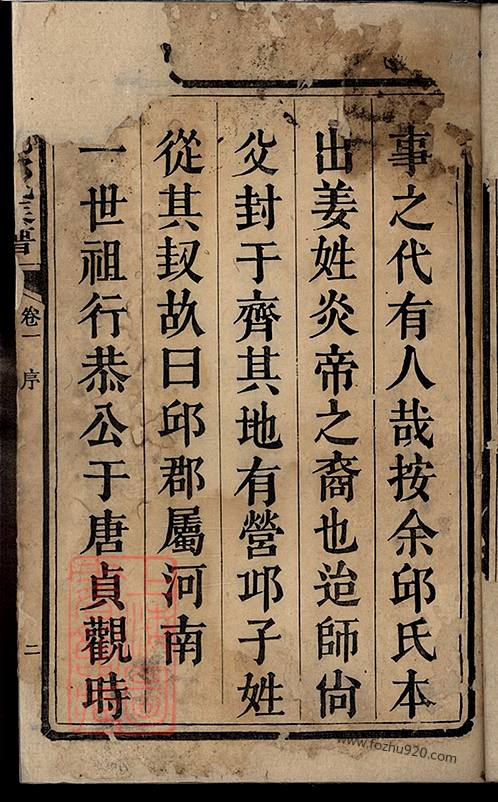 事之代有人哉按余邱氏本
出姜姓炎帝之裔也迨師尙
父封于齊其地有營邱子姓
從其封故曰邱郡屬河南
一世祖行恭公于唐貞觀時
族譜
卷一
序
二
www.fozhu920.com